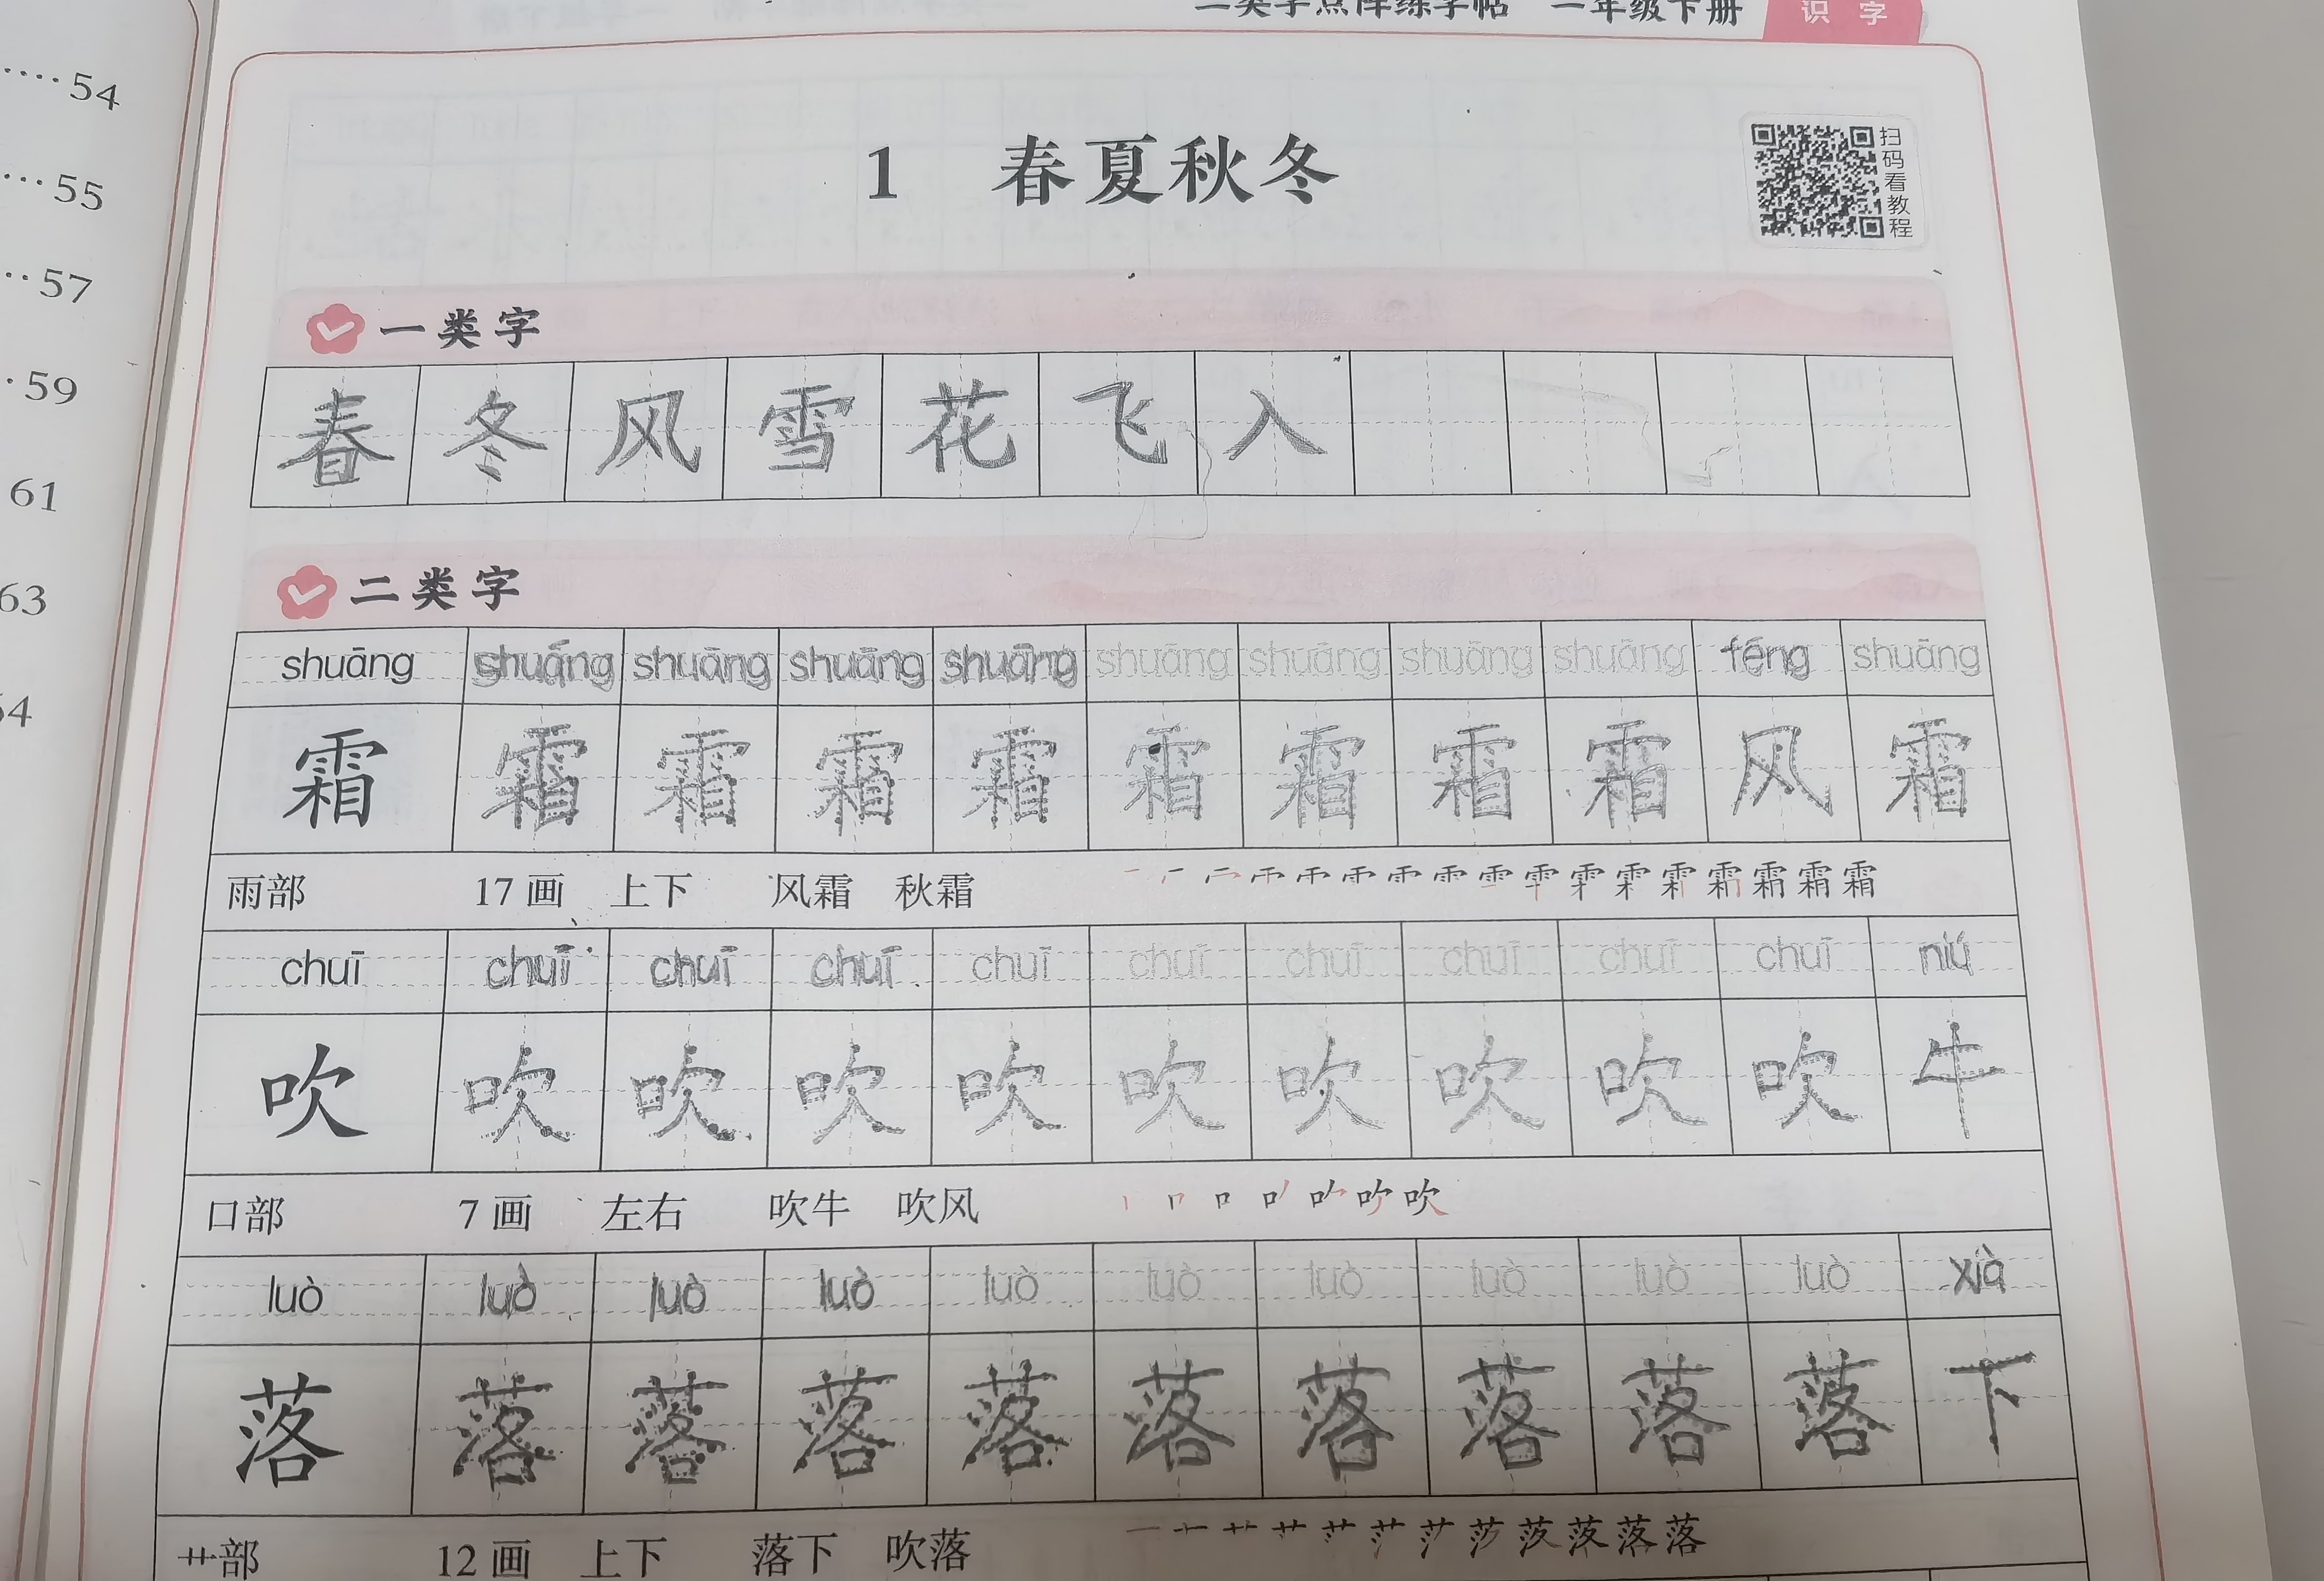 二类字点阵练字帖 一年级下册 识 字
····54
···55
··57
·59
61
63
54
1 春夏秋冬
扫码看教程
一类字
春 冬 风 雪 花 飞 入
二类字
shuāng shuāng shuāng shuāng shuāng shuāng shuāng shuāng shuāng fēng shuāng
霜 霜 霜 霜 霜 霜 霜 霜 霜 风 霜
雨部 17 画 上下 风霜 秋霜
chuī chuī chuī chuī chuī chuī chuī chuī chuī chuī niú
吹 吹 吹 吹 吹 吹 吹 吹 吹 吹 牛
口部 7 画 左右 吹牛 吹风
luò luò luò luò luò luò luò luò luò luò xià
落 落 落 落 落 落 落 落 落 落 下
艹部 12 画 上下 落下 吹落